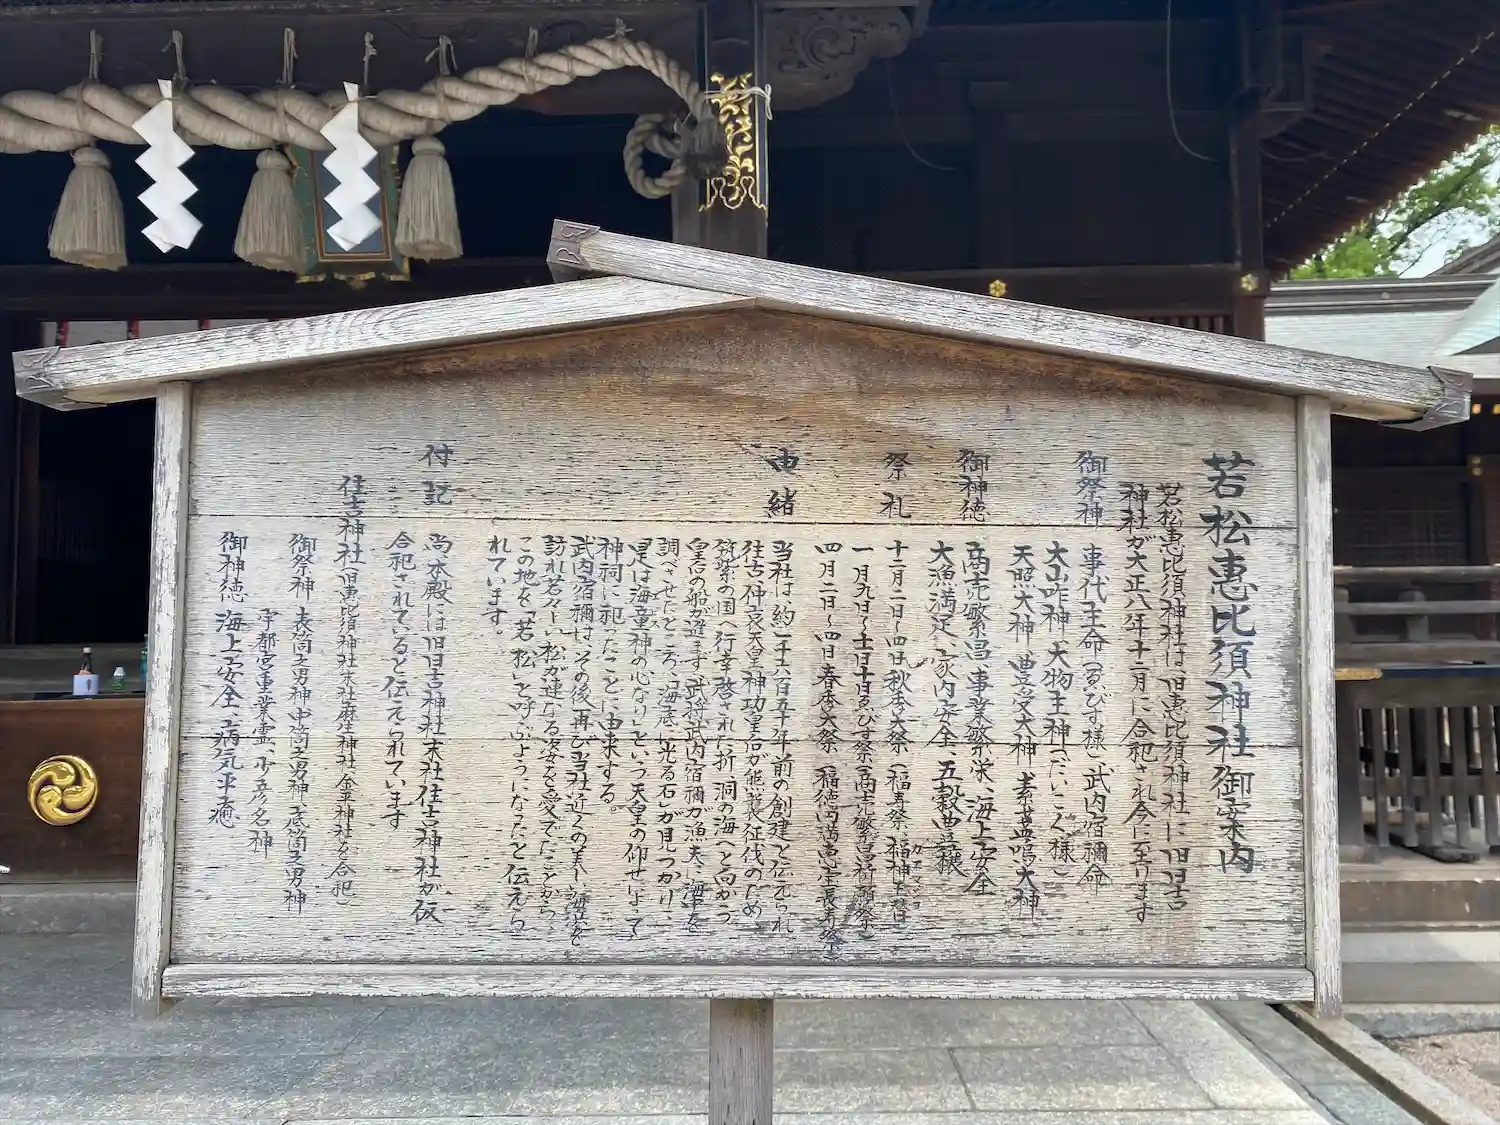 若松恵比須神社御案内
若松恵比須神社は、旧恵比須神社に旧日吉
神社が大正八年十二月に合祀され今に至ります
御祭神 事代主命(ゑびす様)武内宿禰命
大山咋神 大物主神(だいこく様)
天照大神、豊受大神 素盞嗚大神
御神徳 商売繁昌、事業繁栄、海上安全
大漁満足、家内安全、五穀豊穣
祭礼 十二月二日〜四日秋季大祭(福寿祭 福神
一月九日〜十一日十日ゑびす祭(商売繁昌祈願祭)
四月二日〜四日春季大祭(福徳円満恵宝長寿祭)
由緒 当社は約一千六百五十年前の創建と伝えられ
往古仲哀天皇、神功皇后が熊襲征伐のため
筑紫の国へ行幸啓された折、洞の海へと向かう
皇后の船が進まず、武将武内宿禰が漁夫に海中を
調べさせたところ、「海底に光る石」が見つかり、
「是は海童神の心なり」という天皇の仰せによって
神祠に祀ったことに由来する。
武内宿禰は、その後再び当社近くの美しい海岸を
訪れ若々しい松が連なる姿を愛でたことから、
この地を「若松」と呼ぶようになったと伝えら
れています。
付記 尚本殿には旧日吉神社末社住吉神社が仮
合祀されていると伝えられています
住吉神社(旧恵比須神社末社麻生神社、金平神社を合祀)
御祭神 表筒之男神 中筒之男神 底筒之男神
宇都宮重業霊、少彦名神
御神徳 海上安全、病気平癒